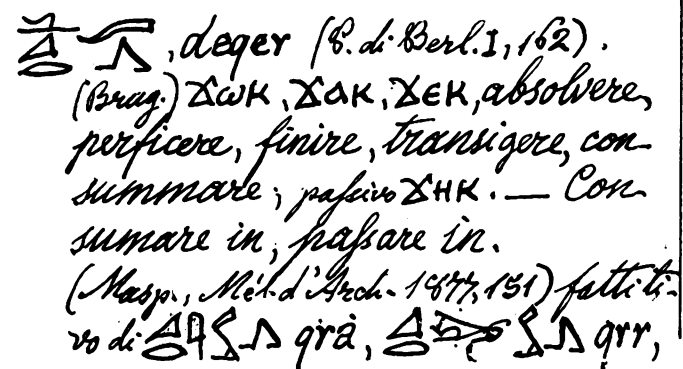 , deqer (P. di Berl. I, 162).
(Brug.) ϫⲱⲕ, ϫⲁⲕ, ϫⲉⲕ, absolvere,
perficere, finire, transigere, con-
summare; paſsivo ϫⲏⲕ. — Con-
sumare in, paſsare in.
(Masp., Mél. d'Arch. 1877, 151) fattiti-
vo di qrà, qrr,